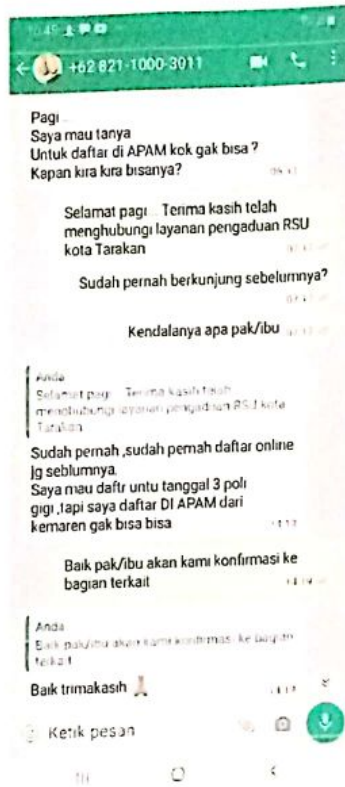 +62 821-1000-3011
Pagi
Saya mau tanya
Untuk daftar di APAM kok gak bisa ?
Kapan kira kira bisanya?
Selamat pagi... Terima kasih telah
menghubungi layanan pengaduan RSU
kota Tarakan
Sudah pernah berkunjung sebelumnya?
Kendalanya apa pak/ibu
Anda
Selamat pagi... Terima kasih telah
menghubungi layanan pengaduan RSU kota
Tarakan
Sudah pernah ,sudah pernah daftar online
jg seblumnya.
Saya mau daftr untu tanggal 3 poli
gigi ,tapi saya daftar DI APAM dari
kemaren gak bisa bisa
Baik pak/ibu akan kami konfirmasi ke
bagian terkait
Anda
Baik pak/ibu akan kami konfirmasi ke bagian
terkait
Baik trimakasih 🙏
Ketik pesan